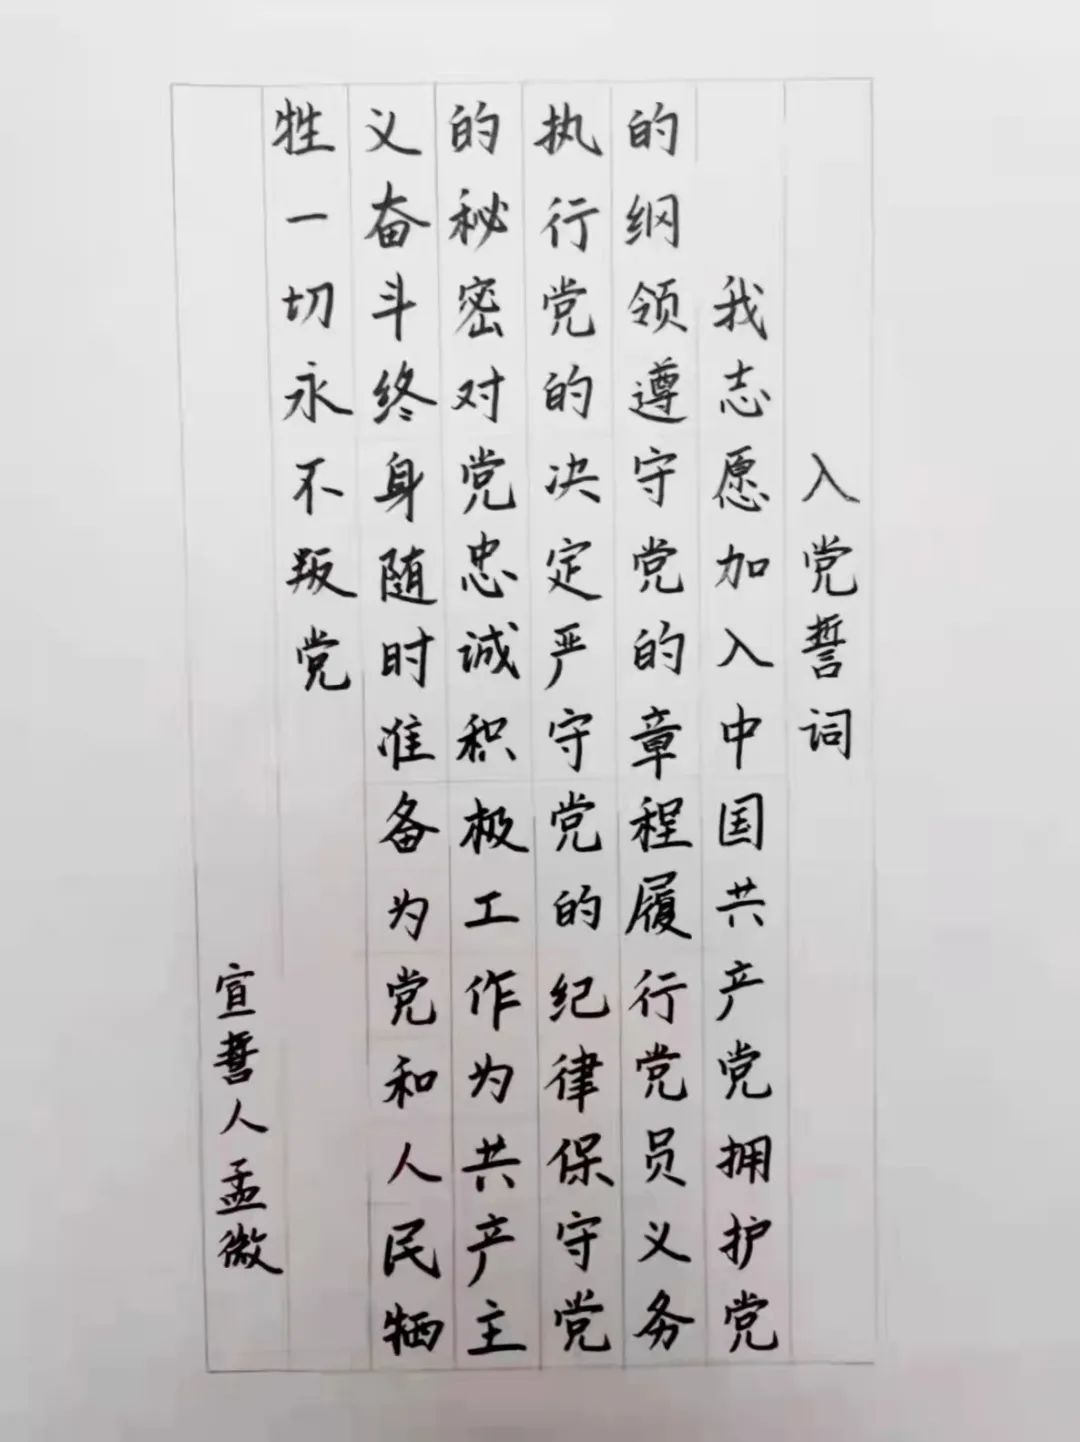 入党誓词
我志愿加入中国共产党拥护党
的纲领遵守党的章程履行党员义务
执行党的决定严守党的纪律保守党
的秘密对党忠诚积极工作为共产主
义奋斗终身随时准备为党和人民牺
牲一切永不叛党
宣誓人孟微